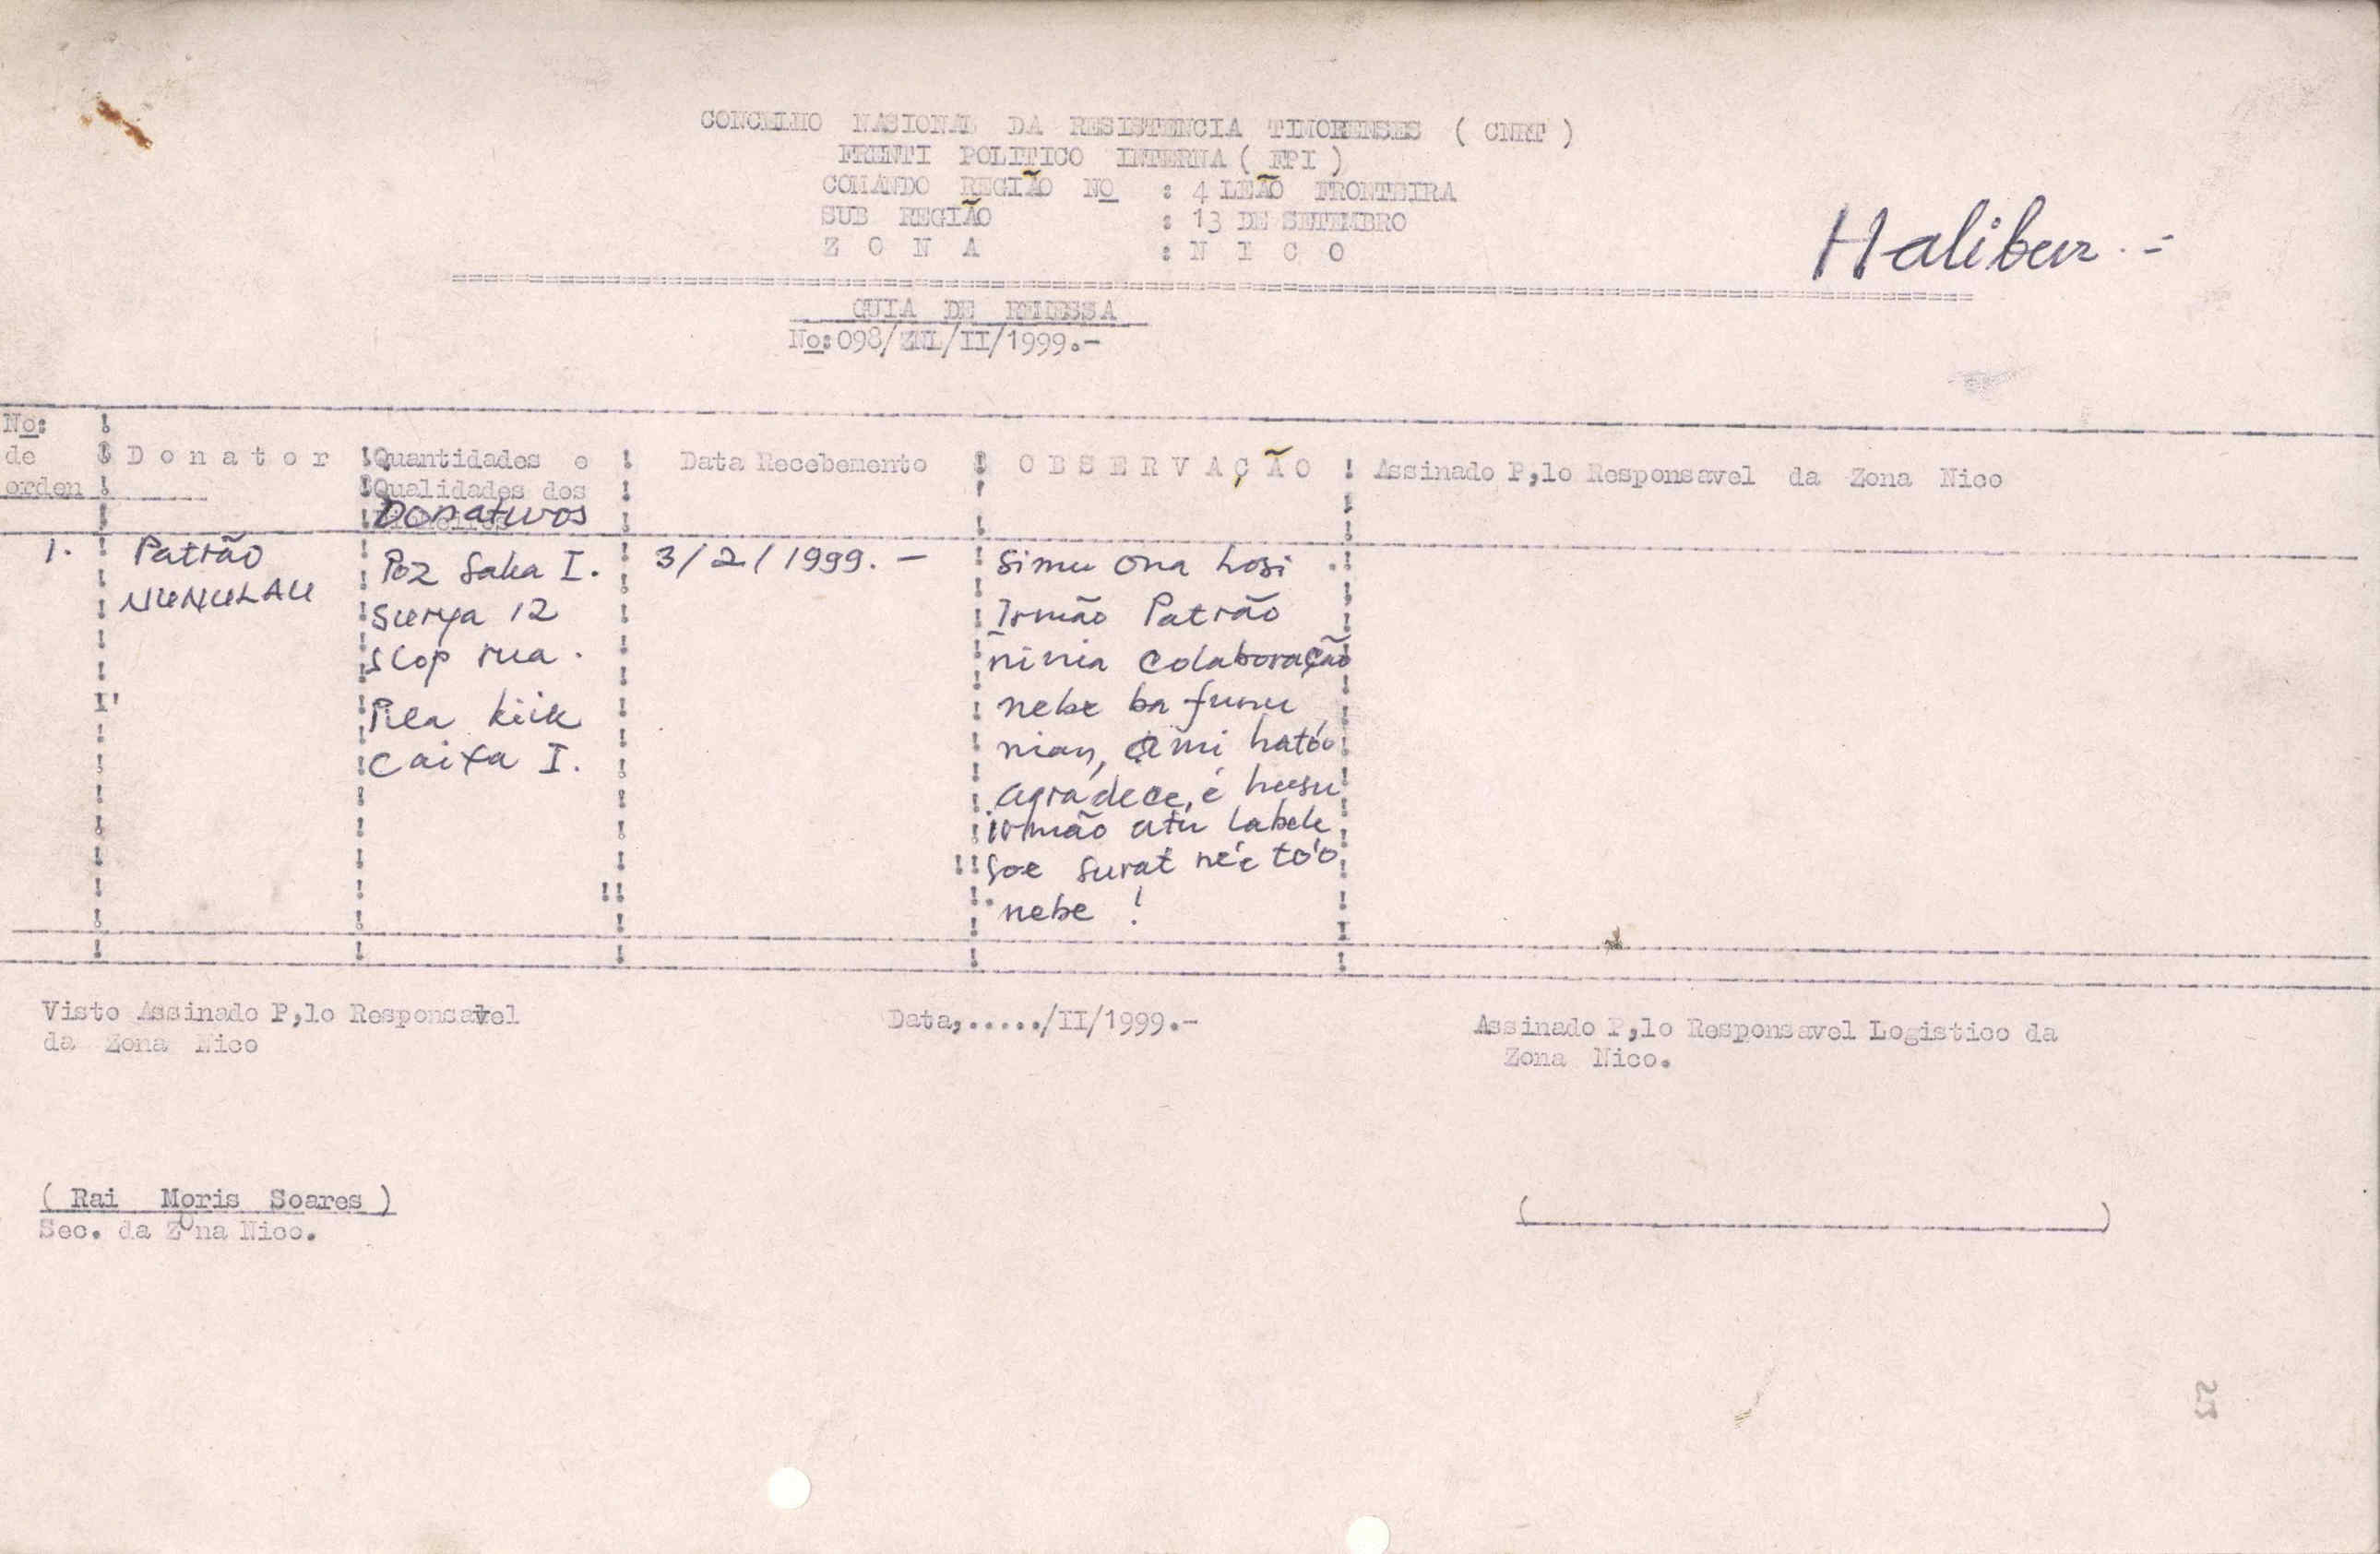 CONCELHO NASIONAL DA RESISTENCIA TIMORENSES ( CNRT )
FRENTI POLITICO INTERNA ( FPI )
COMANDO REGIÃO No : 4 LEÃO FRONTEIRA
SUB REGIÃO : 13 DE SETEMBRO
Z O N A : N I C O
Haliber .=
GUIA DE REMESSA
No:098/ZNL/II/1999.-
No:
de
orden
D o n a t o r
Quantidades e
Qualidades dos
Donativos
Data Recebemento
O B S E R V A Ç Ã O
Assinado P,lo Responsavel da Zona Nico
1.
Patrão
NUNULAU
Poz Saka I.
Surya 12
slop rua.
Pila kiik
Caixa I.
3/2/1999.-
Simu ona hosi
Irmão Patrão
ninia Colaboração
nebe ba funu
nian, ami ható'o
agradece, é husu
irmão atu labele
soe surat né'e tó'o
nebe !
Visto Assinado P,lo Responsavel
da Zona Nico
Data,...../II/1999.-
Assinado P,lo Responsavel Logistico da
Zona Nico.
( Rai Moris Soares )
Sec. da Zona Nico.
( )
23